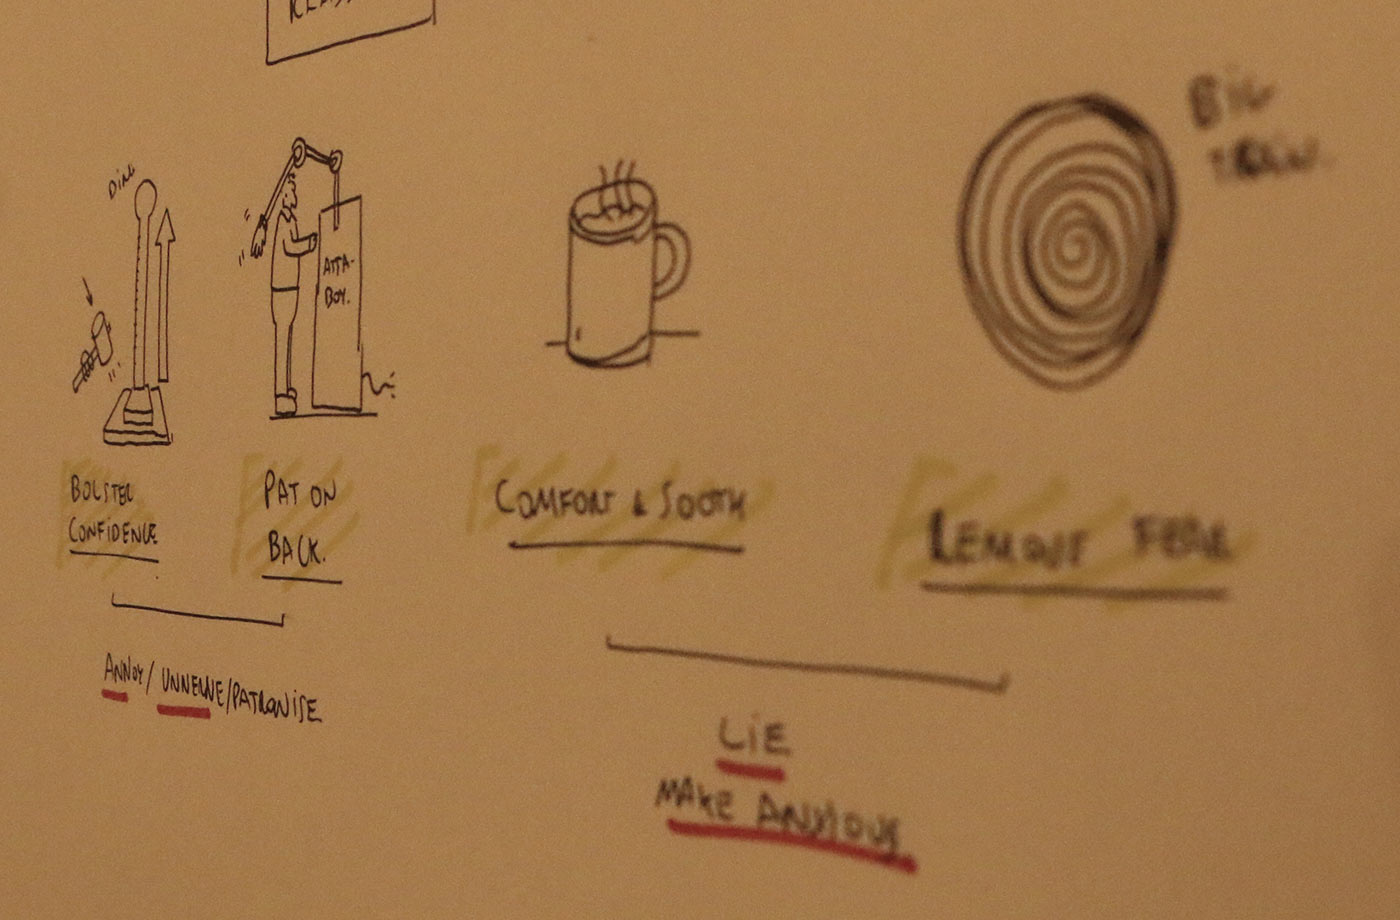 DING
ATTA-
BOY.
BIG
BOLSTER
CONFIDENCE
PAT ON
BACK.
COMFORT & SOOTH
REMOVE FEAR
ANNOY/UNNERVE/PATRONISE
LIE
MAKE ANXIOUS